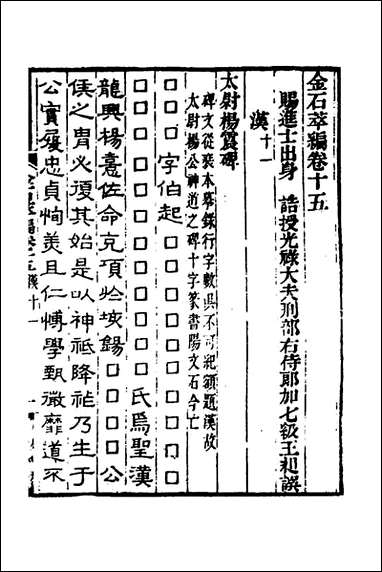 金石萃編卷十五
賜進士出身 誥授光祿大夫刑部右侍郎加七級王昶譔
漢十一
太尉楊震碑
碑文從裝本摹錄行字數俱不可紀額題漢故
太尉楊公神道之碑十字篆書陽文石今亡
□□□字伯起□□□□□□□□□□□
□□□□□□□□□□□□□氏焉聖漢
龍興楊憙佐命克項於垓鍚□□□□□公
侯之胄必復其始是以神祗降祉乃生于
公實履忠貞恂美且仁博學甄微靡道不
金石萃編卷十五 漢十一
一